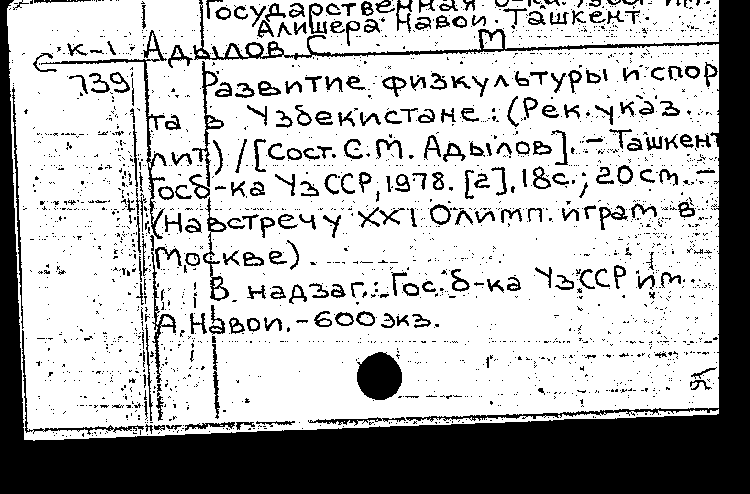 Государственная б-ка УзССР им.
Алишера Навои. Ташкент.
К-1 Адылов, С. М
С
739 Развитие физкультуры и спор
та в Узбекистане: (Рек. указ.
лит) / [Сост. С.М. Адылов]. – Ташкент
Госб-ка УзССР, 1978. [2], 18с.; 20см. –
(Навстречу XXI Олимп. играм в
Москве).
В надзаг.: Гос. б-ка УзССР им.
А. Навои. – 600 экз.